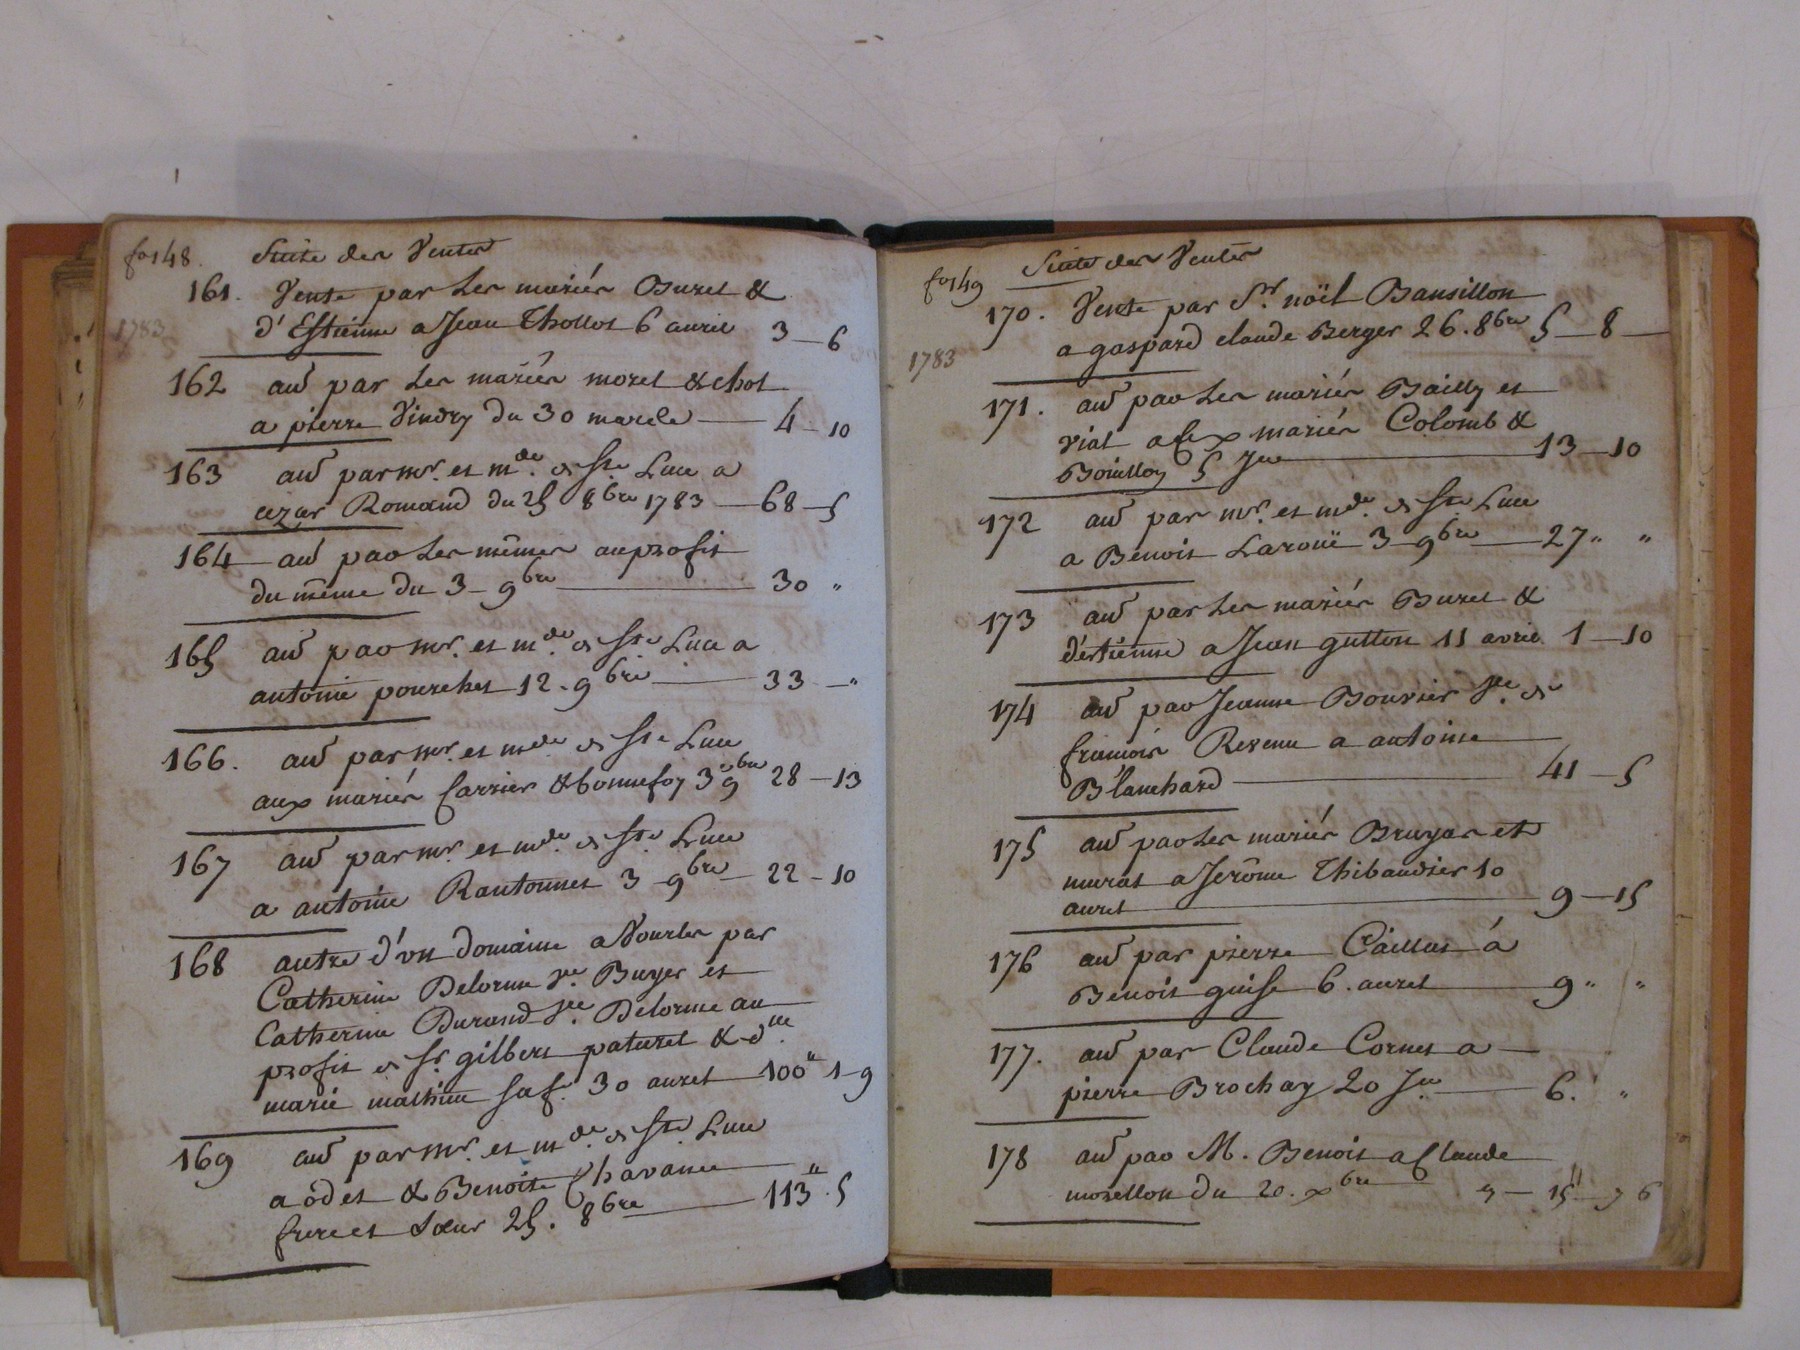 fo 148. Suite des Ventes
161. Vente par les mariés Buret &
1783
d'Estienne a Jean Thollot 6 avril 3—6
162 au. par les mariés moret & chol
a pierre Vindry du 30 mars — 4—10
163 au. par mr. et mde. de Ste Luce a
cezar Romand du 25 8bre 1783 — 68—5
164 — au. par les mêmes au profit
du même du 3—9bre — 30 "
165 au. par mr. et mde. de Ste Luce a
antoine pourchet 12.9bre — 33—"
166. au. par mr. et mde de Ste Luce
aux mariés Carrier & bonnefoy 3 9bre 28—13
167 au. par mr. et mde. de Ste. Luce
a antoine Rantonnet 3—9bre — 22—10
168 autre d'un domaine a Vourles par
Catherine Delorme ve. Buyer et
Catherine Durand ve. Delorme au
profit de Sr. gilbert paturel & dlle
marie mathieu sa f. 30 auret — 100" 1—9
169 au. par mr. et mde. de Ste. Luce
a ôdet & Benoite Chavanne
frere et soeur 25. 8bre — 113".5
fo 149 Suite des Ventes
170. Vente par Sr. noël Bansillon
a gaspard claude Berger 26.8bre 5—8—
1783
171. au. par les mariés Bailly et
viat a aux mariés Colomb &
Bouillon 5 Jer — 13—10
172 au. par mr. et mde. de Ste Luce
a Benoit Laroüe 3—9bre — 27" "
173 au. par les mariés Buret &
d'estienne a Jean gutton 11 avril 1—10
174 au. par Jeanne Bouvier ve. de
francois Revenu a antoine
Blanchard — 41—5
175 au. par les mariés Bruyas et
murat a Jerôme Thibaudier 10
auret — 9—15
176 au. par pierre Caillat à
Benoit guise 6. auret — 9" "
177. au. par Claude Cornet a —
pierre Brochay 20 Jer. — 6. "
178 au. par M. Benoit a Claude
morellon du 20. xbre — 15